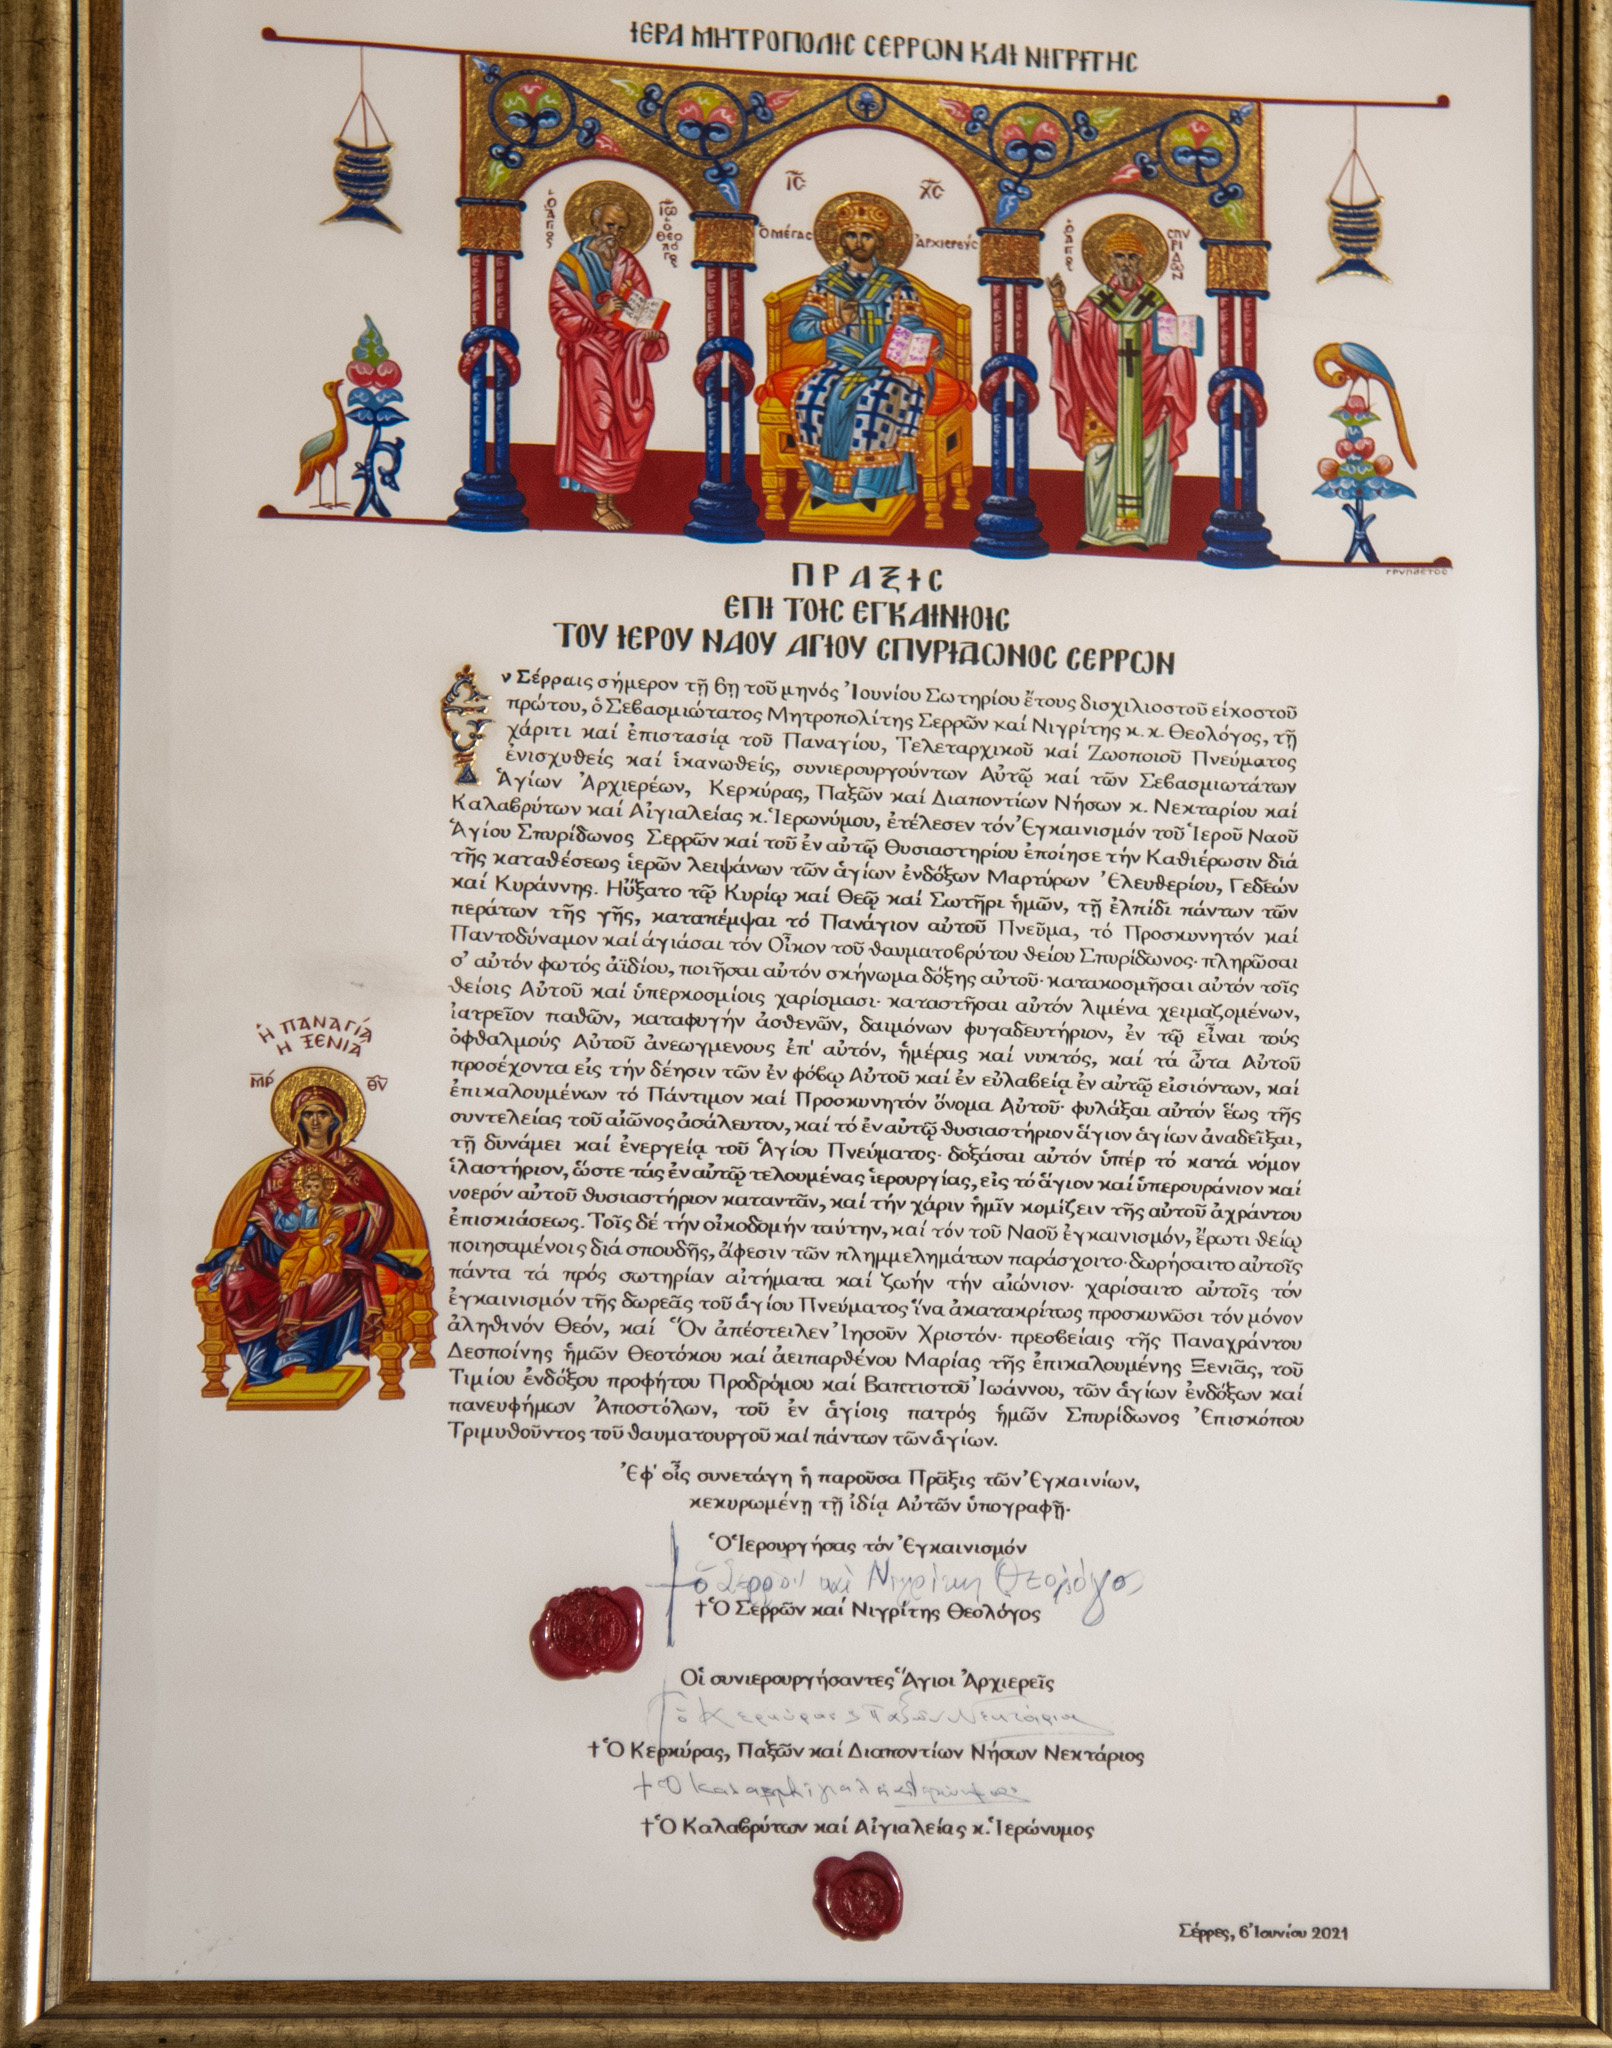 ΙΕΡΑ ΜΗΤΡΟΠΟΛΙΣ ΣΕΡΡΩΝ ΚΑΙ ΝΙΓΡΙΤΗΣ
Ὁ ἍΓΙΟΣ
ΙΩ Ὁ ΘΕΟΛΟΓΟΣ
ΙΣ ΧΣ
Ὁ ΜΕΓΑΣ ἈΡΧΙΕΡΕΥΣ
Ὁ ἍΓΙΟΣ
ΣΠΥΡΙΔΩΝ
ΓΡΥΠΑΕΤΟΣ
ΠΡΑΞΙΣ
ΕΠΙ ΤΟΙΣ ΕΓΚΑΙΝΙΟΙΣ
ΤΟΥ ΙΕΡΟΥ ΝΑΟΥ ΑΓΙΟΥ ΣΠΥΡΙΔΩΝΟΣ ΣΕΡΡΩΝ
Ἐν Σέρραις σήμερον τῇ 6ῃ τοῦ μηνός Ἰουνίου Σωτηρίου ἔτους δισχιλιοστοῦ εἰκοστοῦ
πρώτου, ὁ Σεβασμιώτατος Μητροπολίτης Σερρῶν καί Νιγρίτης κ. κ. Θεολόγος, τῇ
χάριτι καί ἐπιστασίᾳ τοῦ Παναγίου, Τελεταρχικοῦ καί Ζωοποιοῦ Πνεύματος
ἐνισχυθείς καί ἱκανωθείς, συνιερουργούντων Αὐτῷ καί τῶν Σεβασμιωτάτων
Ἁγίων Ἀρχιερέων, Κερκύρας, Παξῶν καί Διαποντίων Νήσων κ. Νεκταρίου καί
Καλαβρύτων καί Αἰγιαλείας κ. Ἱερωνύμου, ἐτέλεσεν τόν Ἐγκαινισμόν τοῦ Ἱεροῦ Ναοῦ
Ἁγίου Σπυρίδωνος Σερρῶν καί τοῦ ἐν αὐτῷ Θυσιαστηρίου ἐποίησε τήν Καθιέρωσιν διά
τῆς καταθέσεως ἱερῶν λειψάνων τῶν ἁγίων ἐνδόξων Μαρτύρων Ἐλευθερίου, Γεδεών
καί Κυράννης. Ηὔξατο τῷ Κυρίῳ καί Θεῷ καί Σωτῆρι ἡμῶν, τῇ ἐλπίδι πάντων τῶν
περάτων τῆς γῆς, καταπέμψαι τό Πανάγιον αὐτοῦ Πνεῦμα, τό Προσκυνητόν καί
Παντοδύναμον καί ἁγιάσαι τόν Οἶκον τοῦ θαυματοβρύτου θείου Σπυρίδωνος· πληρῶσαι
σ' αὐτόν φωτός ἀϊδίου, ποιῆσαι αὐτόν σκήνωμα δόξης αὐτοῦ· κατακοσμῆσαι αὐτόν τοῖς
θείοις Αὐτοῦ καί ὑπερκοσμίοις χαρίσμασι· καταστῆσαι αὐτόν λιμένα χειμαζομένων,
ἰατρεῖον παθῶν, καταφυγήν ἀσθενῶν, δαιμόνων φυγαδευτήριον, ἐν τῷ εἶναι τούς
ὀφθαλμούς Αὐτοῦ ἀνεωγμενους ἐπ' αὐτόν, ἡμέρας καί νυκτός, καί τά ὦτα Αὐτοῦ
προσέχοντα εἰς τήν δέησιν τῶν ἐν φόβῳ Αὐτοῦ καί ἐν εὐλαβείᾳ ἐν αὐτῷ εἰσιόντων, καί
ἐπικαλουμένων τό Πάντιμον καί Προσκυνητόν ὄνομα Αὐτοῦ· φυλάξαι αὐτόν ἕως τῆς
συντελείας τοῦ αἰῶνος ἀσάλευτον, καί τό ἐν αὐτῷ θυσιαστήριον ἅγιον ἁγίων ἀναδεῖξαι,
τῇ δυνάμει καί ἐνεργείᾳ τοῦ Ἁγίου Πνεύματος· δοξάσαι αὐτόν ὑπέρ τό κατά νόμον
ἱλαστήριον, ὥστε τάς ἐν αὐτῷ τελουμένας ἱερουργίας, εἰς τό ἅγιον καί ὑπερουράνιον καί
νοερόν αὐτοῦ θυσιαστήριον καταντᾶν, καί τήν χάριν ἡμῖν κομίζειν τῆς αὐτοῦ ἀχράντου
ἐπισκιάσεως. Τοῖς δέ τήν οἰκοδομήν ταύτην, καί τόν τοῦ Ναοῦ ἐγκαινισμόν, ἔρωτι θείῳ
ποιησαμένοις διά σπουδῆς, ἄφεσιν τῶν πλημμελημάτων παράσχοιτο· δωρήσαιτο αὐτοῖς
πάντα τά πρός σωτηρίαν αἰτήματα καί ζωήν τήν αἰώνιον· χαρίσαιτο αὐτοῖς τόν
ἐγκαινισμόν τῆς δωρεᾶς τοῦ ἁγίου Πνεύματος ἵνα ἀκατακρίτως προσκυνῶσι τόν μόνον
ἀληθινόν Θεόν, καί Ὅν ἀπέστειλεν Ἰησοῦν Χριστόν· πρεσβείαις τῆς Παναχράντου
Δεσποίνης ἡμῶν Θεοτόκου καί ἀειπαρθένου Μαρίας τῆς ἐπικαλουμένης Ξενιᾶς, τοῦ
Τιμίου ἐνδόξου προφήτου Προδρόμου καί Βαπτιστοῦ Ἰωάννου, τῶν ἁγίων ἐνδόξων καί
πανευφήμων Ἀποστόλων, τοῦ ἐν ἁγίοις πατρός ἡμῶν Σπυρίδωνος Ἐπισκόπου
Τριμυθοῦντος τοῦ θαυματουργοῦ καί πάντων τῶν ἁγίων.
Ἡ ΠΑΝΑΓΊΑ
Ἡ ΞΕΝΙΆ
ΜΡ ΘΥ
ΙΣ ΧΣ
Ἐφ' οἷς συνετάγη ἡ παροῦσα Πρᾶξις τῶν Ἐγκαινίων,
κεκυρωμένη τῇ ἰδίᾳ Αὐτῶν ὑπογραφῇ.
Ὁ Ἱερουργήσας τόν Ἐγκαινισμόν
† ὁ Σερρῶν καὶ Νιγρίτης Θεολόγος
† Ὁ Σερρῶν καί Νιγρίτης Θεολόγος
Οἱ συνιερουργήσαντες Ἅγιοι Ἀρχιερεῖς
† ὁ Κερκύρας & Παξῶν Νεκτάριος
† Ὁ Κερκύρας, Παξῶν καί Διαποντίων Νήσων Νεκτάριος
† Ὁ
† Ὁ Καλαβρύτων καί Αἰγιαλείας κ. Ἱερώνυμος
Σέρρες, 6 Ἰουνίου 2021